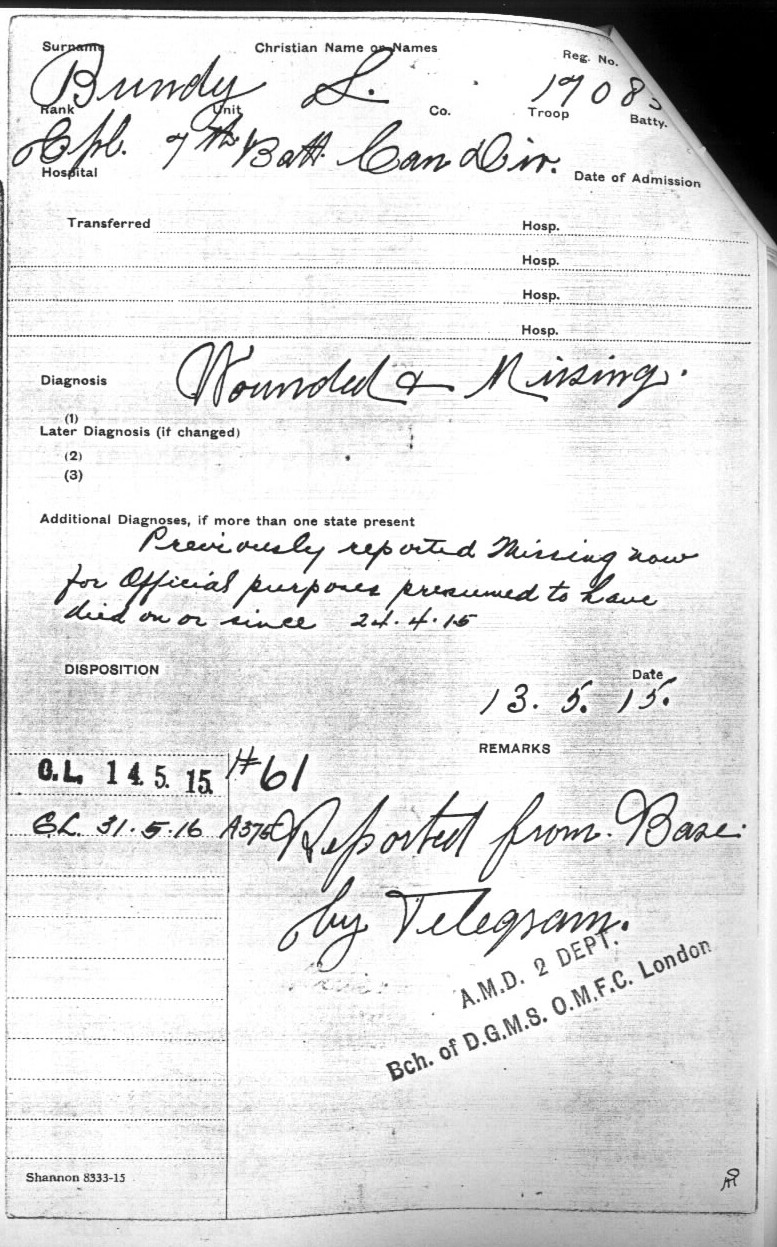 Surname Christian Name or Names Reg. No.
Bundy L. 17083
Rank Unit Co. Troop Batty.
L Cpl. 7th Batt. Can Div.
Hospital Date of Admission
Transferred Hosp.
Hosp.
Hosp.
Hosp.
Diagnosis Wounded & Missing.
(1)
Later Diagnosis (if changed)
(2)
(3)
Additional Diagnoses, if more than one state present
Previously reported Missing now
for Official purposes presumed to have
died on or since 24.4.15
DISPOSITION
Date
13. 5. 15.
REMARKS
C.L. 14. 5. 15. #61
CL. 31.5.16 Reported from Base
by Telegram.
A.M.D. 2 DEPT.
Bch. of D.G.M.S. O.M.F.C. London
Shannon 8333-15